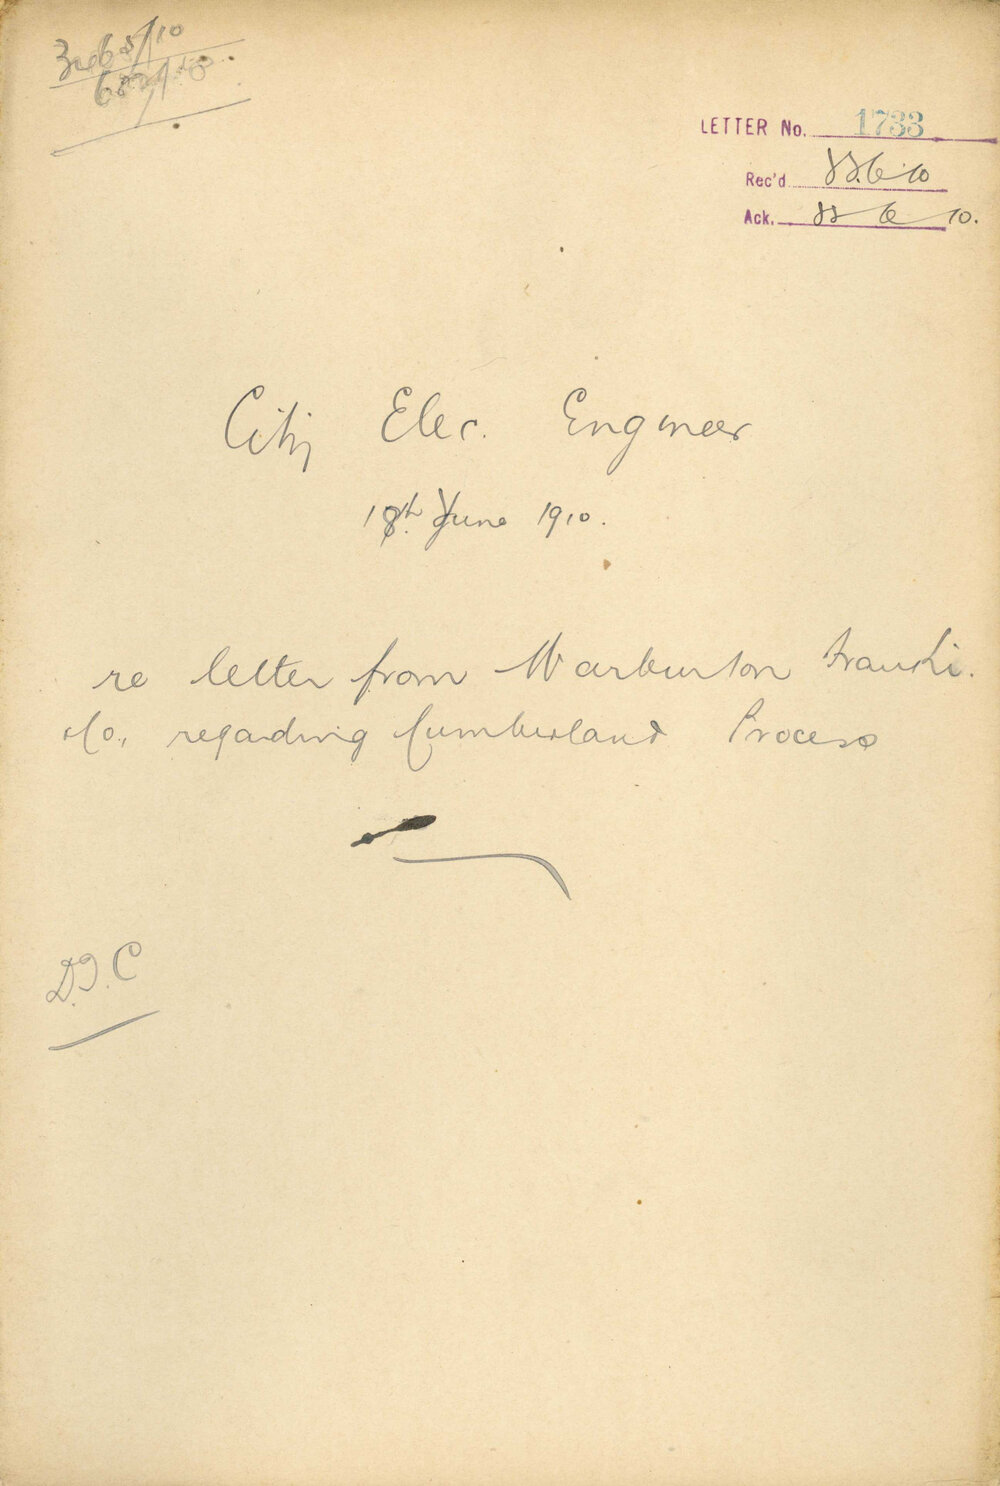 LETTER No. 1733
Rec'd 22.6.10
Ack. 22 6 10.
City Elec. Engineer
18th June 1910.
re letter from Warburton Franki.
& Co., regarding Cumberland Process
D.J.C